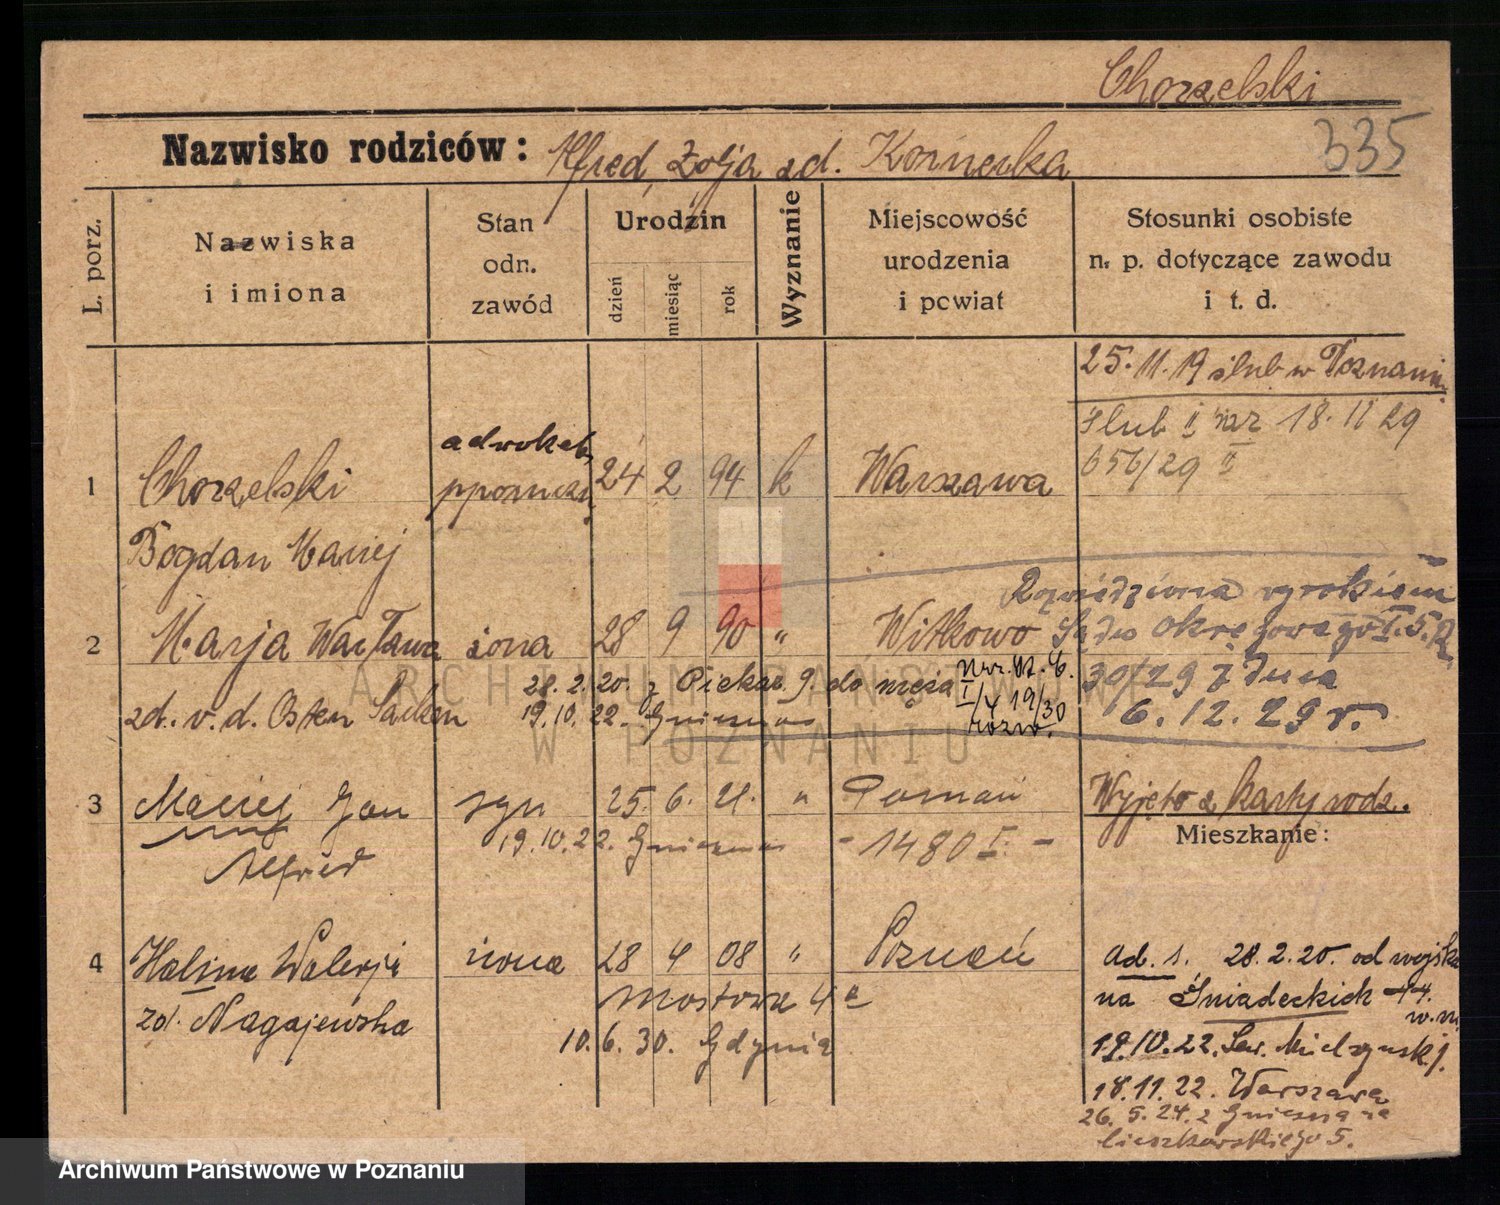 Chorzelski
335
Nazwisko rodziców: Alfred, Zofja zd. Kornecka
L. porz.
Nazwiska
i imiona
Stan
odn.
zawód
Urodzin
dzień
miesiąc
rok
Wyznanie
Miejscowość
urodzenia
i powiat
Stosunki osobiste
n. p. dotyczące zawodu
i t. d.
25. 11. 19 ślub w Poznaniu.
Ślub II raz 18. 11 29
656/29 II
1 Chorzelski adwokat pporuczn. 24 2 94 k Warszawa
Bogdan Maciej
Rozwiedziona wyrokiem
2 Marja Wacława żona 28 9 90 " Witkowo Sądu Okręgowego
30/29 z dnia
6. 12. 29 r.
zd. v. d. Osten Sacken
28. 2. 20. z Piekar. 9. do męża
19. 10. 22. Gniezno
I/4 19/30
rozw.
3 Maciej Jan syn 25. 6. 21. " Poznań
Alfred
19. 10. 22. Gniezno - 1480 I. -
Wyjęto z karty rodz.
Mieszkanie:
4 Halina Walerja żona 28 4 08 " Poznań
zd. Nagajewska
Mostowa 4a
10. 6. 30. Gdynia
ad. 1. 28. 2. 20. od wojska
na Śniadeckich 44.
w. m.
19. 10. 22. Sew. Mielżyńsk.
18. 11. 22. Warszawa
26. 5. 24. z Gniezna na
Cieszkowskiego 5.
ARCHIWUM PAŃSTWOWE
W POZNANIU
Archiwum Państwowe w Poznaniu